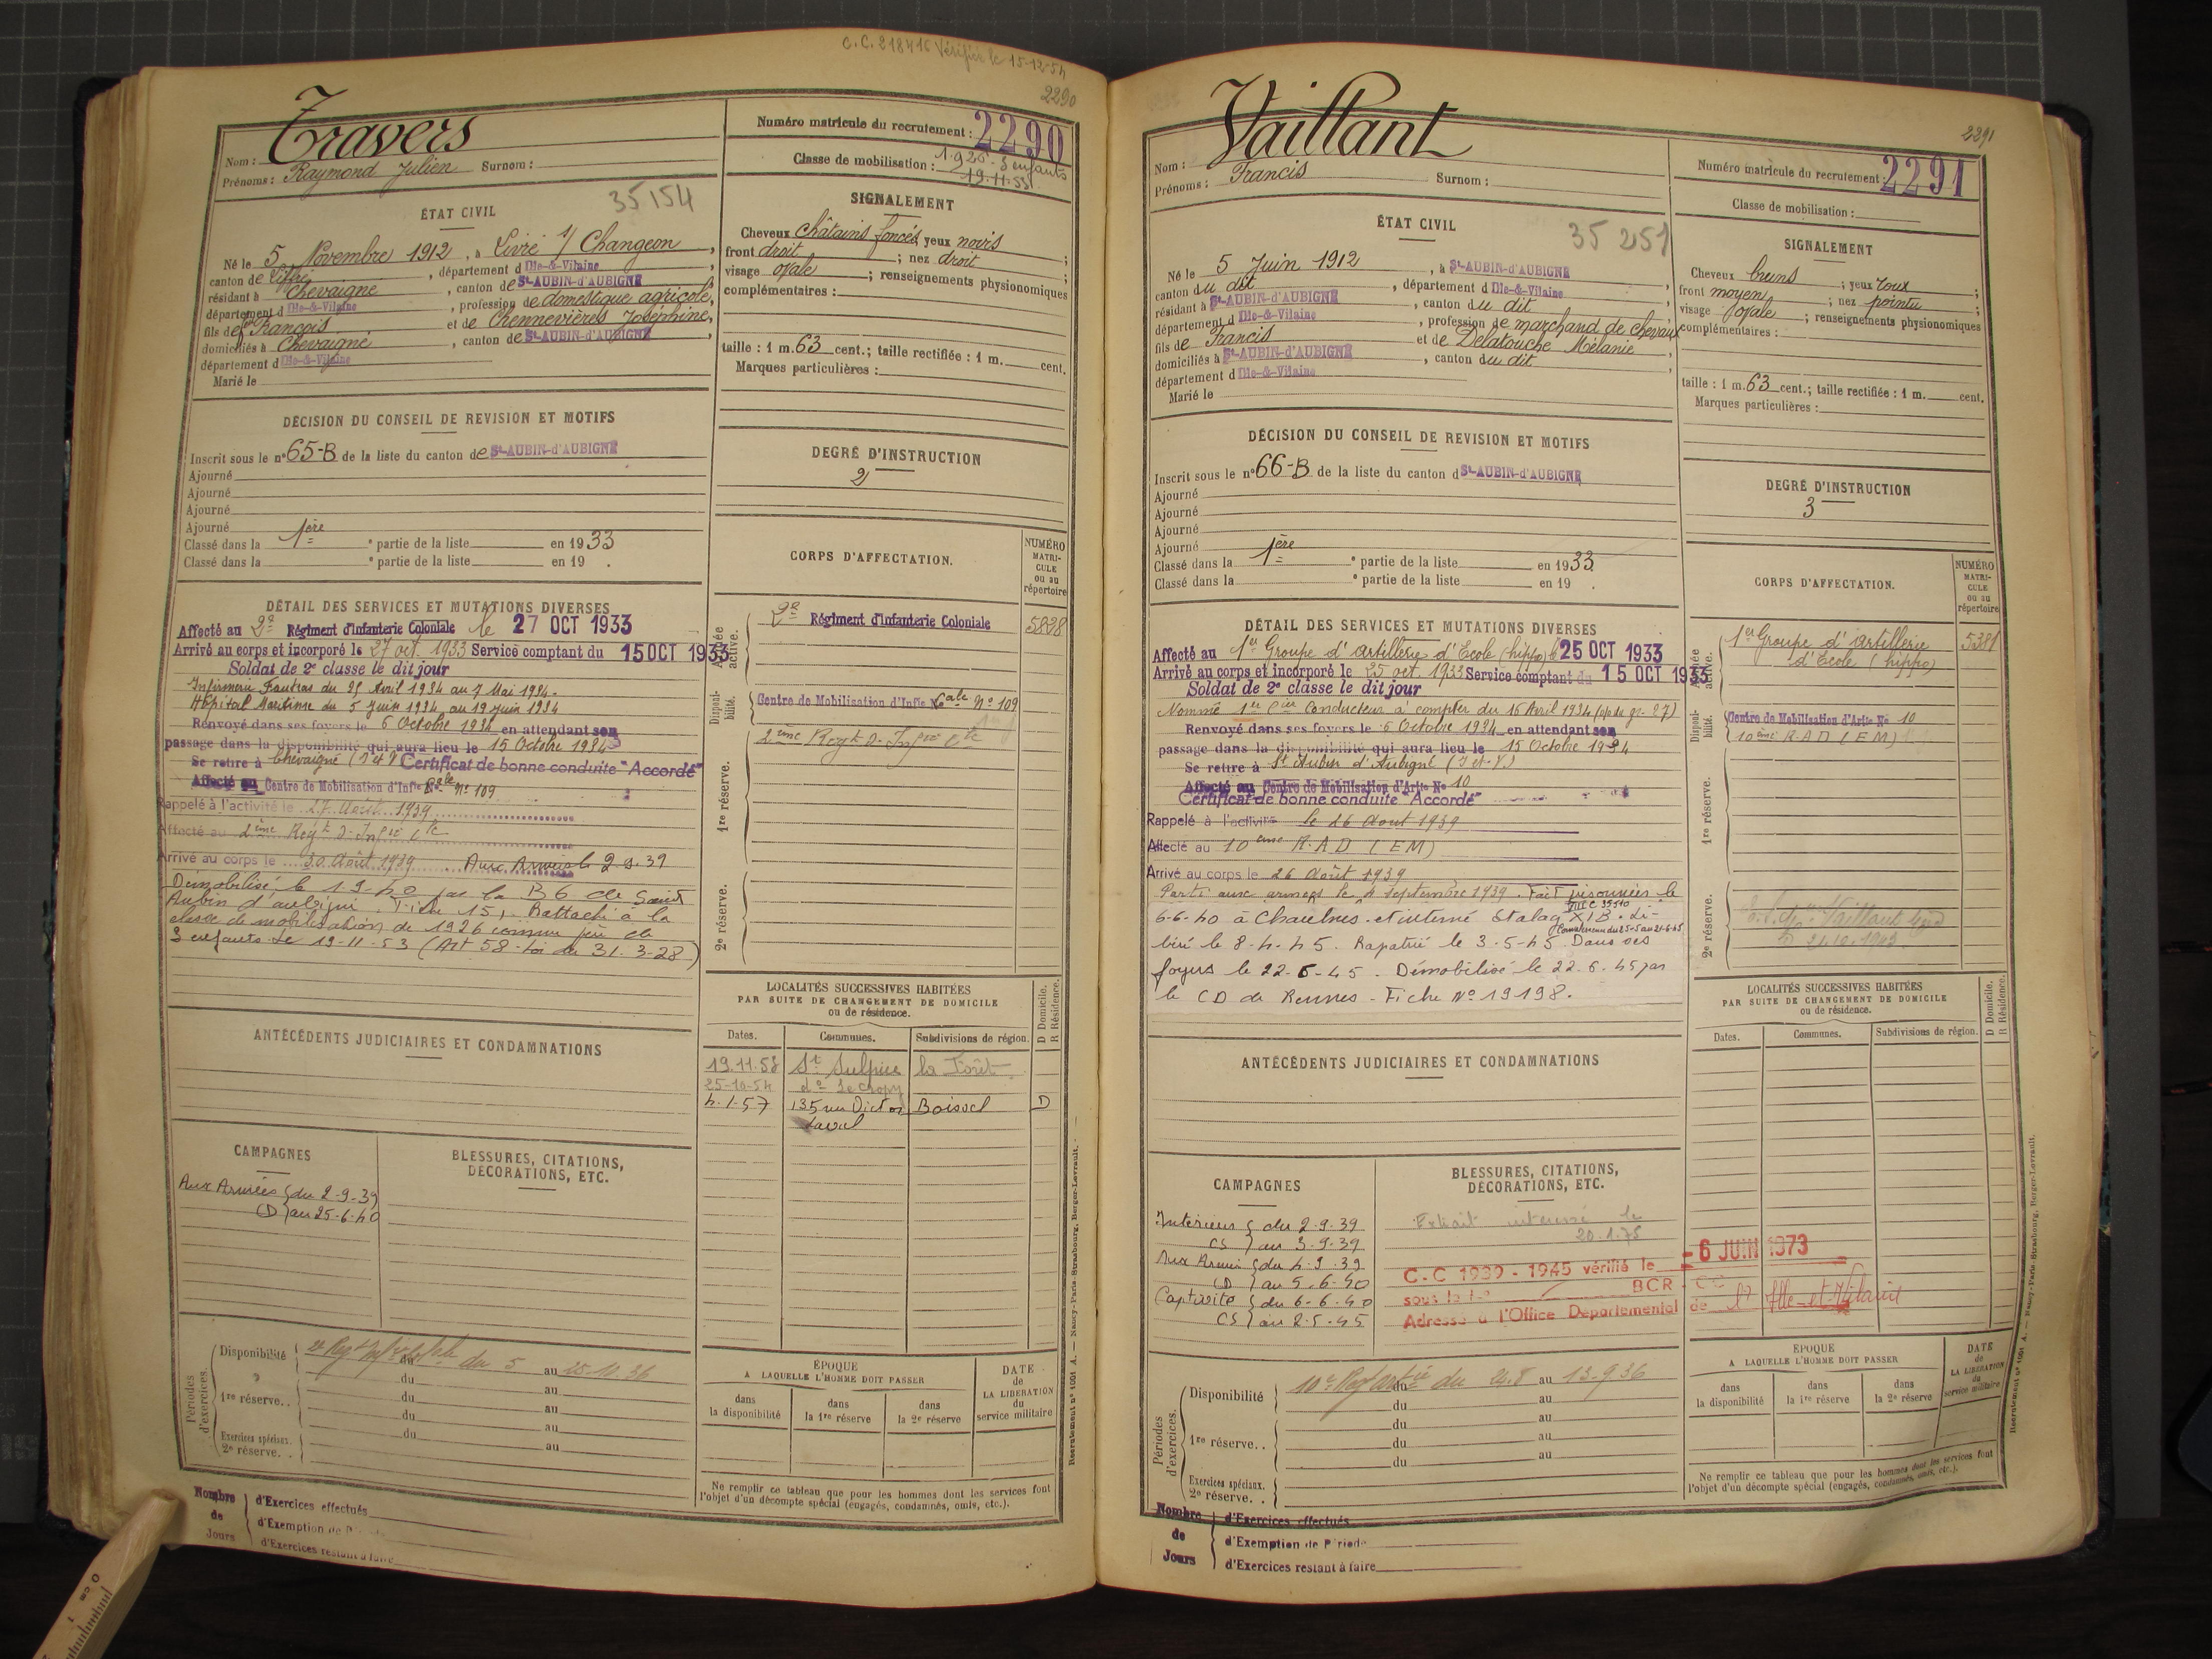 C.C. 218416 Vérifiée le 15-12-54
2290
Nom : Travers
Prénoms : Raymond Julien Surnom :
Numéro matricule du recrutement : 2290
Classe de mobilisation : 1926 - 3 enfants
19.11.53
35154
ÉTAT CIVIL
Né le 5 Novembre 1912, à Livré s/ Changeon,
canton de Liffré, département d Ille-&-Vilaine,
résidant à Chevaigné, canton de St-AUBIN-d'AUBIGNÉ
département d Ille-&-Vilaine, profession de domestique agricole,
fils de feu François et de Chennevières Joséphine,
domiciliés à Chevaigné, canton de St-AUBIN-d'AUBIGNÉ
département d Ille-&-Vilaine
Marié le
SIGNALEMENT
Cheveux châtains foncés, yeux noirs ;
front droit ; nez droit ;
visage ovale ; renseignements physionomiques
complémentaires :
taille : 1 m. 63 cent.; taille rectifiée : 1 m. cent.
Marques particulières :
DÉCISION DU CONSEIL DE REVISION ET MOTIFS
Inscrit sous le n° 65-B de la liste du canton de St-AUBIN-d'AUBIGNÉ
Ajourné
Ajourné
Ajourné
Ajourné
Classé dans la 1ère ° partie de la liste en 1933
Classé dans la ° partie de la liste en 19 .
DEGRÉ D'INSTRUCTION
2
DÉTAIL DES SERVICES ET MUTATIONS DIVERSES
Affecté au 2e Régiment d'Infanterie Coloniale le 27 OCT 1933
Arrivé au corps et incorporé le 27 oct. 1933 Service comptant du 15 OCT 1933
Soldat de 2e classe le dit jour
Infirmerie Fautras du 25 Avril 1934 au 7 Mai 1934.
Hôpital Maritime du 5 Juin 1934 au 19 juin 1934
Renvoyé dans ses foyers le 6 Octobre 1934 en attendant son
passage dans la disponibilité qui aura lieu le 15 Octobre 1934
Se retire à Chevaigné (I et V) Certificat de bonne conduite "Accordé"
Affecté au Centre de Mobilisation d'Infie Cale N° 109
Rappelé à l'activité le 27 Août 1939
Affecté au 2ème Regt d'Infie Cle
Arrivé au corps le 30 Août 1939 Aux Armées le 2.9.39
Démobilisé le 1-9-40 par la B 6 de Saint
Aubin d'aubigné, Fiche 151, Rattaché à la
classe de mobilisation de 1926 comme père de
3 enfants Le 19-11-53 (Art 58 - Loi du 31.3-28)
CORPS D'AFFECTATION.
NUMÉRO MATRI-CULE ou au répertoire
Armée active.
2e Régiment d'Infanterie Coloniale 5838
Disponi-bilité.
Centre de Mobilisation d'Infie Cale N° 109
1re réserve.
2ème Regt d'Infie Cle
2e réserve.
ANTÉCÉDENTS JUDICIAIRES ET CONDAMNATIONS
LOCALITÉS SUCCESSIVES HABITÉES
PAR SUITE DE CHANGEMENT DE DOMICILE
ou de résidence.
D Domicile. R Résidence.
Dates. Communes. Subdivisions de région.
19.11.53 St Sulpice la Forêt
25-10-54 do
4.1.57 135 rue Victor Boissel D
Laval
CAMPAGNES
Aux Armées { du 2-9-39
CD } au 25-6-40
BLESSURES, CITATIONS,
DÉCORATIONS, ETC.
Périodes d'exercices.
Disponibilité 2e Regt Infie Cole du 5 au 25.10.36
du au
1re réserve.. du au
du au
Exercices spéciaux. du au
2e réserve. . au
ÉPOQUE
A LAQUELLE L'HOMME DOIT PASSER
dans la disponibilité
dans la 1re réserve
dans la 2e réserve
DATE de LA LIBÉRATION du service militaire
Ne remplir ce tableau que pour les hommes dont les services font
l'objet d'un décompte spécial (engagés, condamnés, omis, etc.).
Nombre de Jours
d'Exercices effectués
d'Exemption de P
d'Exercices restant à faire
Recrutement n° 1001 A. — Nancy-Paris-Strasbourg, Berger-Levrault.
2291
Nom : Vaillant
Prénoms : Francis Surnom :
Numéro matricule du recrutement : 2291
Classe de mobilisation :
35251
ÉTAT CIVIL
Né le 5 Juin 1912, à St-AUBIN-d'AUBIGNÉ
canton du dit, département d Ille-&-Vilaine
résidant à St-AUBIN-d'AUBIGNÉ, canton du dit
département d Ille-&-Vilaine, profession de marchand de chevaux
fils de Francis et de Delatouche Mélanie
domiciliés à St-AUBIN-d'AUBIGNÉ, canton du dit
département d Ille-&-Vilaine
Marié le
SIGNALEMENT
Cheveux bruns ; yeux roux ;
front moyen ; nez pointu ;
visage ovale ; renseignements physionomiques
complémentaires :
taille : 1 m. 63 cent.; taille rectifiée : 1 m. cent.
Marques particulières :
DÉCISION DU CONSEIL DE REVISION ET MOTIFS
Inscrit sous le n° 66-B de la liste du canton d St-AUBIN-d'AUBIGNÉ
Ajourné
Ajourné
Ajourné
Ajourné
Classé dans la 1ère ° partie de la liste en 1933
Classé dans la ° partie de la liste en 19 .
DEGRÉ D'INSTRUCTION
3
DÉTAIL DES SERVICES ET MUTATIONS DIVERSES
Affecté au 1er Groupe d'Artillerie d'Ecole (hippo) le 25 OCT 1933
Arrivé au corps et incorporé le 25 oct. 1933 Service comptant du 15 OCT 1933
Soldat de 2e classe le dit jour
Nommé 1er Cier Conducteur à compter du 16 Avril 1934
Renvoyé dans ses foyers le 6 Octobre 1934 en attendant son
passage dans la disponibilité qui aura lieu le 15 Octobre 1934
Se retire à St Aubin d'Aubigné (I et V)
Affecté au Centre de Mobilisation d'Artie No 10
Certificat de bonne conduite "Accordé"
Rappelé à l'activité le 26 Août 1939
Affecté au 10ème R.A.D (EM)
Arrivé au corps le 26 Août 1939
Parti aux armées le 4 Septembre 1939. Fait prisonnier le
6-6-40 à Chaulnes et interné Stalag XI B. Li-
béré le 8-4-45. Rapatrié le 3-5-45. Dans ses
foyers le 22-6-45. Démobilisé le 22.6.45 par
le CD de Rennes - Fiche N° 19198.
CORPS D'AFFECTATION.
NUMÉRO MATRI-CULE ou au répertoire
Armée active.
1er Groupe d'Artillerie 5381
d'Ecole (hippo)
Disponi-bilité.
Centre de Mobilisation d'Artie No 10
10ème R.A.D (EM)
1re réserve.
2e réserve.
ANTÉCÉDENTS JUDICIAIRES ET CONDAMNATIONS
LOCALITÉS SUCCESSIVES HABITÉES
PAR SUITE DE CHANGEMENT DE DOMICILE
ou de résidence.
D Domicile. R Résidence.
Dates. Communes. Subdivisions de région.
CAMPAGNES
Intérieur { du 2-9-39
CS } au 3-9-39
Aux Armées { du 4-9-39
CD } au 5-6-40
Captivité { du 6-6-40
CS } au 2-5-45
BLESSURES, CITATIONS,
DÉCORATIONS, ETC.
Extrait le
20-1-75
C.C 1939 - 1945 vérifié le - 6 JUIN 1973
sous le BCR - CC
Adresse à l'Office Départemental de l'Ille-et-Vilaine
Périodes d'exercices.
Disponibilité 10e Regt Artie du 24.8 au 13-9.36
du au
1re réserve.. du au
du au
du au
Exercices spéciaux.
2e réserve. .
ÉPOQUE
A LAQUELLE L'HOMME DOIT PASSER
dans la disponibilité
dans la 1re réserve
dans la 2e réserve
DATE de LA LIBÉRATION du service militaire
Ne remplir ce tableau que pour les hommes dont les services font
l'objet d'un décompte spécial (engagés, condamnés, omis, etc.).
Nombre de Jours
d'Exercices effectués
d'Exemption de Période
d'Exercices restant à faire
Recrutement n° 1001 A. — Nancy-Paris-Strasbourg, Berger-Levrault.
0 cm 1